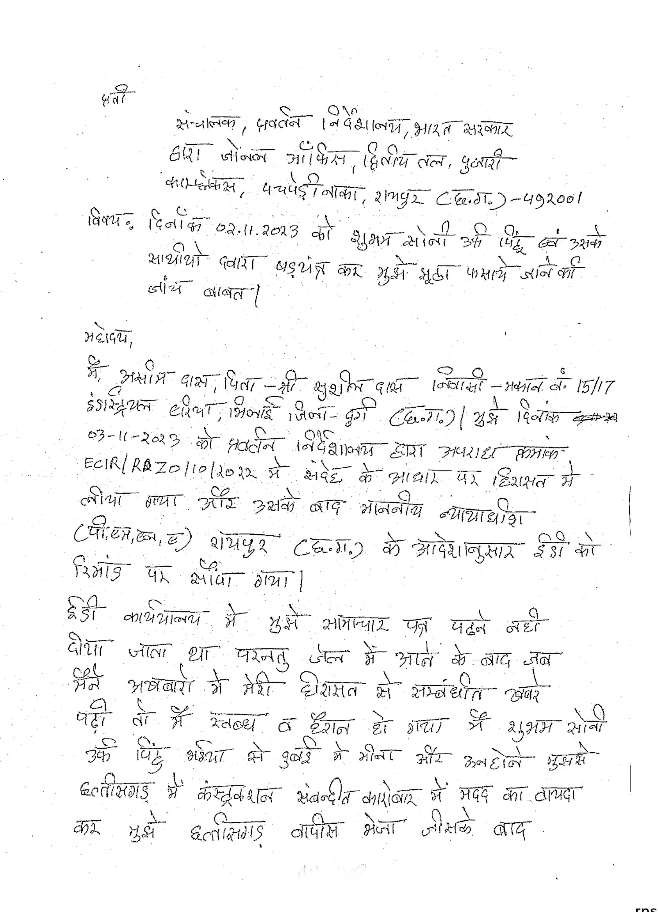 प्रती
संचालक, प्रवर्तन निर्देशालय, भारत सरकार
द्वारा जोनल ऑफिस, द्वितीय तल, पुजारी
काम्प्लेक्स, पचपेड़ी नाका, रायपुर (छ.ग.) - 492001
विषय: दिनाँक 02.11.2023 को शुभम सोनी उर्फ पिंटू एवं उसके
साथीयो द्वारा षड़यंत्र कर मुझे झूठा फसाये जाने की
जांच बाबत |
महोदय,
मैं, असीम दास, पिता - श्री सुशील दास निवासी - मकान नं. 15/17
इंडस्ट्रियल एरिया, भिलाई जिला - दुर्ग (छ.ग.) | मुझे दिनांक
03-11-2023 को प्रवर्तन निर्देशालय द्वारा अपराध क्रमांक
ECIR/RPZO/10/2022 मे संदेह के आधार पर हिरासत मे
लीया गया और उसके बाद माननीय न्यायाधीश
(पी,एम,एल,ए) रायपुर (छ.ग.) के आदेशानुसार ईडी को
रिमांड पर सौंपा गया |
ईडी कार्ययालय मे मुझे सामाचार पत्र पढ़ने नही
दीया जाता था परन्तु जेल में आने के बाद जब
मैंने अखबारो मे मेरी हीरासत से सम्बंधीत खबरे
पढ़ी तो मैं स्तब्ध व हैरान हो गया मैं शुभम सोनी
उर्फ पिंटु भईया से दुबई मे मीला और उनहोने मुझसे
छत्तीसगड़ में कंस्ट्रक्शन संबन्दीत कारोबार में मदद का वायदा
कर मुझे छत्तीसगड़ वापीस भेजा जीसके बाद
rps